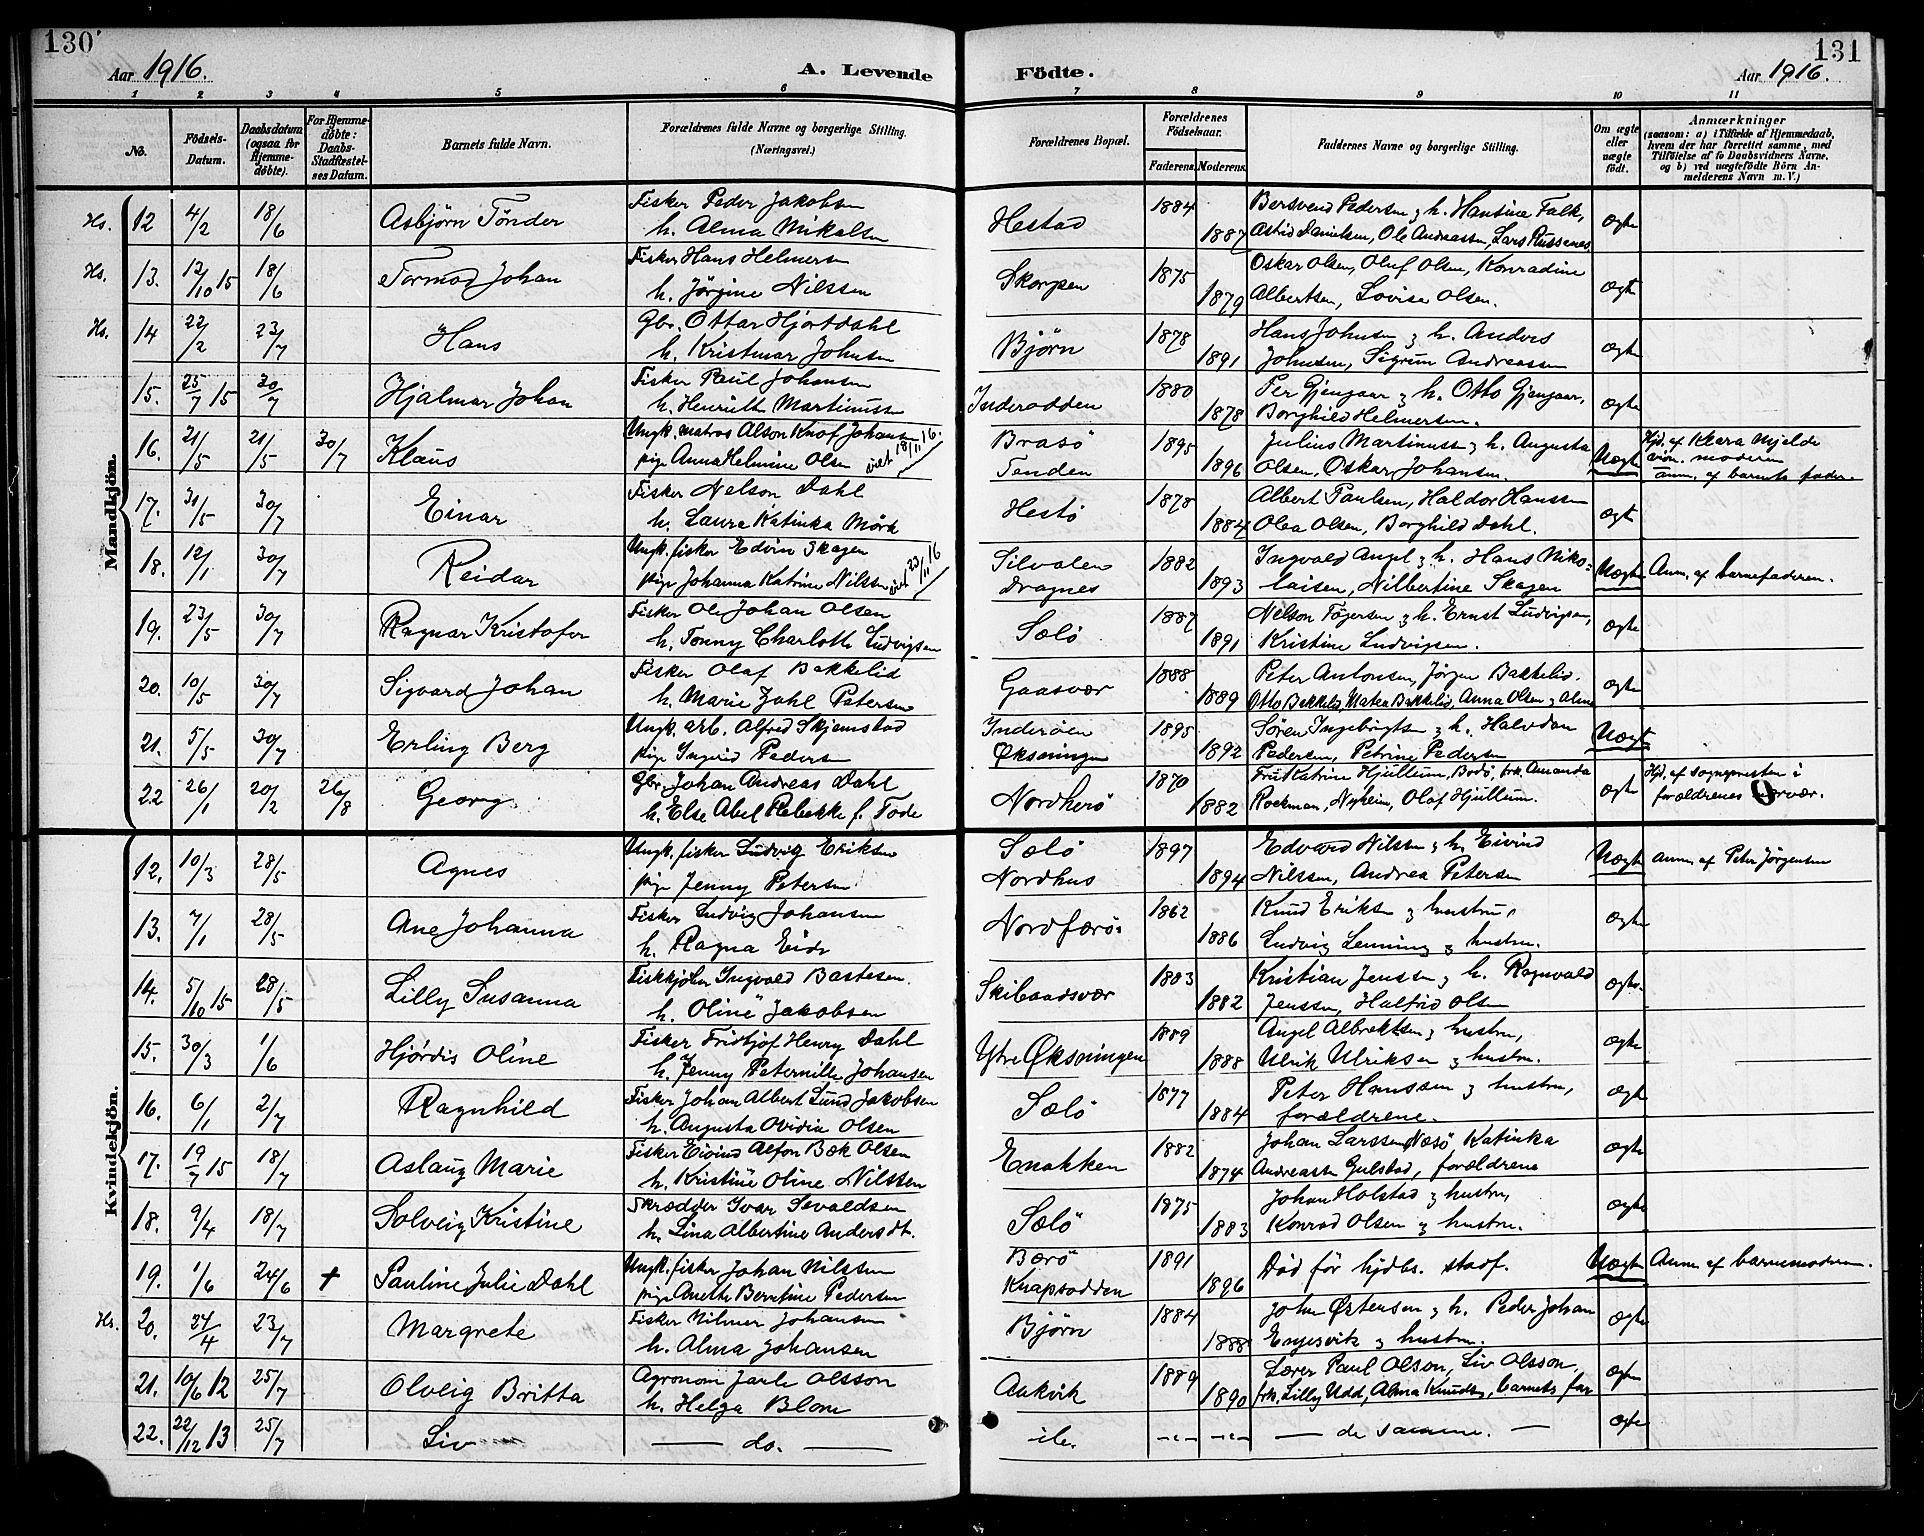 130
131
Aar 1916.
A. Levende
Födte.
Aar 1916.
1 2 3 4 5 6 7 8 9 10 11
No.
Födsels-Datum.
Daabsdatum (ogsaa for Hjemme-döbte).
For Hjemme-döbte: Daabs-Stadfæstel-ses Datum.
Barnets fulde Navn.
Forældrenes fulde Navne og borgerlige Stilling. (Næringsvei.)
Forældrenes Bopæl.
Forældrenes Födselsaar.
Faderens. Moderens.
Faddernes Navne og borgerlige Stilling.
Om ægte eller uægte födt.
Anmærkninger
(saasom: a) i Tilfælde af Hjemmedaab, hvem der har forrettet samme, med Tilföielse af to Daabsvidners Navne, og b) ved uægtefödte Börn An-melderens Navn m. V.)
Mandkjön.
Hs. 12 4/2 18/6 Asbjörn Tönder Fisker Peder Jakobsen Hestad 1884 Bersvend Pedersen & h. Hantine Falk,
h. Alma Mikalsen 1887 Astrid Danielsen, Ole Andreassen, Lars Russenes ægte
Hs. 13. 12/10 15 18/6 Tormod Johan Fisker Hans Helmersen Skorpen 1875 Oskar Olsen, Oluf Olsen, Konradine
h. Jörgine Nilssen 1879 Albertsen, Lovise Olsen. ægt
Hs. 14 22/2 23/7 Hans Gbr. Ottar Hjortdahl Björn 1878 Hans Johnsen & h. Anders
h. Kristmar Johnsen 1891 Johnsen, Sigrun Andreassen ægte
15. 25/7 15 30/7 Hjalmar Johan Fisker Paul Johansen Inderodden 1880 Per Gjengaar & h. Otto Gjengaar,
h. Henriette Martinussen 1878 Borghild Helmersen. ægte
16. 21/5 21/5 30/7 Klaus Ungk. matros Alson Knof Johansen Brasö 1895 Julius Martinussen & h. Augusta Hjd. af Klara Mjelde
pige Anna Helmine Olsen viet 18/11 16. Tenden 1896 Olsen, Oskar Johansen. Uægte moderen
anm. af barnets fader.
17. 31/5 30/7 Einar Fisker Nelson Dahl Hestö 1878 Albert Paulsen, Haldor Hanssen
h. Laura Katinka Mörk 1884 Olea Olsen, Borghild Dahl. ægt
18. 12/1 30/7 Reidar Ungk. fisker Edvin Skagen Silvalen 1882 Ingvald Angel & h. Hans Niko-
pige Johanna Katrine Nilssen viet 23/11 16 Dragnes 1893 laisen, Nilbertine Skagen Uægte Anm. af barnefaderen.
19. 23/5 30/7 Ragnar Kristofer Fisker Ole Johan Olsen Sælö 1887 Nelson Togersen & h. Ernst Ludvigsen,
h. Tonny Charlotte Ludvigsen 1891 Kristine Ludvigsen. ægte
20. 10/5 30/7 Sigvard Johan Fisker Olaf Bakkelid Gaasvær 1888 Peter Antonsen, Jörgen Bakkelid.
h. Marie Dahl Petersen 1889 Otto Bakkelid, Matea Bakkelid, Anna Olsen & Alma ægte
21. 5/5 30/7 Erling Berg Ungk. arb. Alfred Skjemstad Inderöen 1895 Sören Ingebrigtsen & h. Halvdan
pige Ingrid Pedersen Økseningen 1892 Pedersen, Petrine Pedersen Uægt
22 26/1 20/2 26/8 Georg Gbr. Johan Andreas Dahl Nordherö 1870 Fru Katrine Hjullum, Bodö, frk. Amanda Hjd. af sogneprsten i
h. Else Abel Rebekke f. Tode 1882 Rockman, Nyheim, Olaf Hjullum. ægte forældrenes nærvær.
Kvindekjön.
12. 10/3 28/5 Agnes Ungk. fisker Ludvig Eriksen Sælö 1897 Edvard Nilssen & h. Eivind
pige Jenny Petersen Nordhus 1894 Nilssen, Andrea Petersen Uægte anm. af Peter Jörgensen
13. 7/1 28/5 Ane Johanna Fisker Ludvig Johansen Nordfærö 1862 Knud Eriksen & hustru,
h. Ragna Eide 1886 Ludvig Lenning & hustru. ægte
14. 5/10 15 28/5 Lilly Susanna Fiskkjöber Ingvald Bastesen Skibaadsvær 1883 Kristian Jenssen & h. Ragnvald
h. Oline Jakobsen 1882 Jenssen, Halfrid Olsen ægte.
15. 30/3 1/6 Hjördis Oline Fisker Fridtjof Henry Dahl Ytre Øksningen 1889 Angel Albrektsen & hustru,
h. Jenny Peternille Johansen 1888 Ulrik Ulriksen & hustru. ægte
16. 6/1 2/7 Ragnhild Fisker Johan Albert Lund Jakobsen Sælö 1877 Peter Hanssen & hustru,
h. Augusta Ovidia Olsen 1884 forældrene. ægt
17. 19/7 15 18/7 Aslaug Marie Fisker Eivind Alfon Bek Olsen Enokken 1882 Johan Larssen Næsö Katinka
h. Kristine Oline Nilssen 1874 Andreassen Gulstad, forældrene ægte
18. 9/4 18/7 Solveig Kristine Skrædder Ivar Sevaldsen Sælö 1875 Johan Holstad & hustru,
h. Lina Albertine Andersdt. 1883 Konrad Olsen & hustru. ægte
19. 1/6 24/6 † Pauline Julie Dahl Ungk. fisker Johan Nilssen Bærö 1891
pige Anette Berntine Pedersen Knapsodden 1896 Död för hjdbs. stadf. Uægte Anm. af barnemoderen.
Hs. 20. 24/4 23/7 Margrete Fisker Hilmer Johansen Björn 1884 John Ørtensen & h. Peder Johan
h. Alma Johansen 1888 Engesvik & hustru. ægte
21. 10/6 12 25/7 Olveig Britta Agronom Jarle Olsson Aakvik 1889 Lærer Paul Olsson, Liv Olsson,
h. Helga Blom 1890 frk. Lilly Udd, Alma Knudts, barnets far ægte
22. 22/12 13 25/7 Liv — do. — ib. -"- -"- — de samme. — ægte